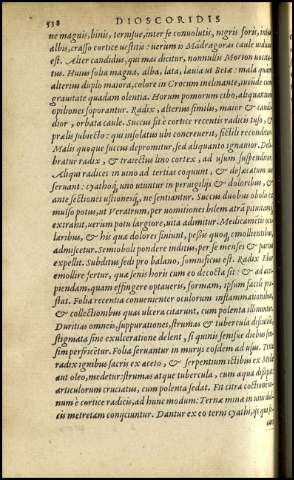 538 DIOSCORIDIS
ne magnis, binis, ternisue, inter se conuolutis, nigris foris, intus
albis, crasso cortice uestitis: uerum is Madragoras caule uiduus
est. Alter candidus, qui mas dicitur, nonnullis Morion uocitatus. Huius folia magna, alba, lata, læuia ut Betæ: mala quàm
alterius duplo maiora, colore in Crocum inclinante, iucundè cum
grauitate quadam olentia. Horum pomorum cibo, aliquantum
opiliones soporantur. Radix, alterius similis, maior & candidior, orbata caule. Succus fit è cortice recentis radicis tuso, &
prælis subiecto: qui insolatus ubi concreuerit, fictili reconditur.
Malis quoque succus depromitur, sed aliquanto ignauior. Delibratur radix, & traiectus lino cortex, ad usum suspenditur.
Aliqui radices in uino ad tertias coquunt, & defæcatum ius
seruant: cyathoq; uno utuntur in peruigilijs & doloribus, &
ante sectiones ustionesq;, ne sentiantur. Succus duobus obolis ex
mulso potus, ut Veratrum, per uomitiones bilem atrā pituitamq;
extrahit, uerùm potu largiore, uita adimitur. Medicamētis oculaeribus, & his quæ dolores finiunt, pessis quoq;, emollientibus,
admiscetur. Semioboli pondere inditus, per se menses & partus
expellit. Subditus sedi pro balano, somnificus est. Radix Ebur
emollire fertur, quæ senis horis cum eo decocta sit: & ad accipiendam, quam effingere optaueris, formam, ipsum facilè præstat. Folia recentia conuenienter oculorum inflammationibus,
& collectionibus quas ulcera citarunt, cum polenta illinuntur.
Duritias omneis, suppurationes, strumas & tubercula discutit,
stigmata sine exulceratione delent, si quinis senisue diebus sensim perfricetur. Folia seruantur in murijs eosdem ad usus. Trita
radix ignibus sacris ex aceto, & serpentum ictibus ex Melle
aut oleo, medetur: strumas atque tubercula, cum aqua dissipat:
articulorum cruciatus, cum polenta sedat. Fit citra coctionem uinum è cortice radicis, ad hunc modum: Ternæ minæ in uini dulcis metretam conijciuntur. Dantur ex eo terni cyathi, ijs qui se-